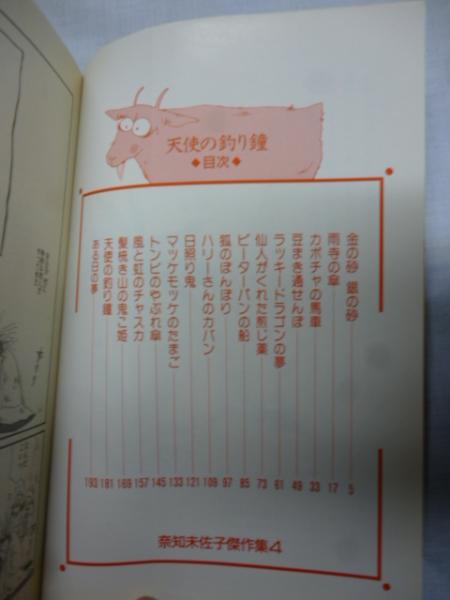 天使の釣り鐘
◆目次◆
金の砂 銀の砂 5
雨寺の傘 17
カボチャの馬車 33
豆まき通せんぼ 49
ラッキードラゴンの夢 61
仙人がくれた煎じ薬 73
ピーターパンの船 85
狐のぼんぼり 97
ハリーさんのカバン 109
日照り鬼 121
マツケモツケのたまご 133
トンビのやぶれ傘 145
風と虹のチャスカ 157
髪梳き山の鬼ご姫 169
天使の釣り鐘 181
ある日の夢 193
奈知未佐子傑作集4